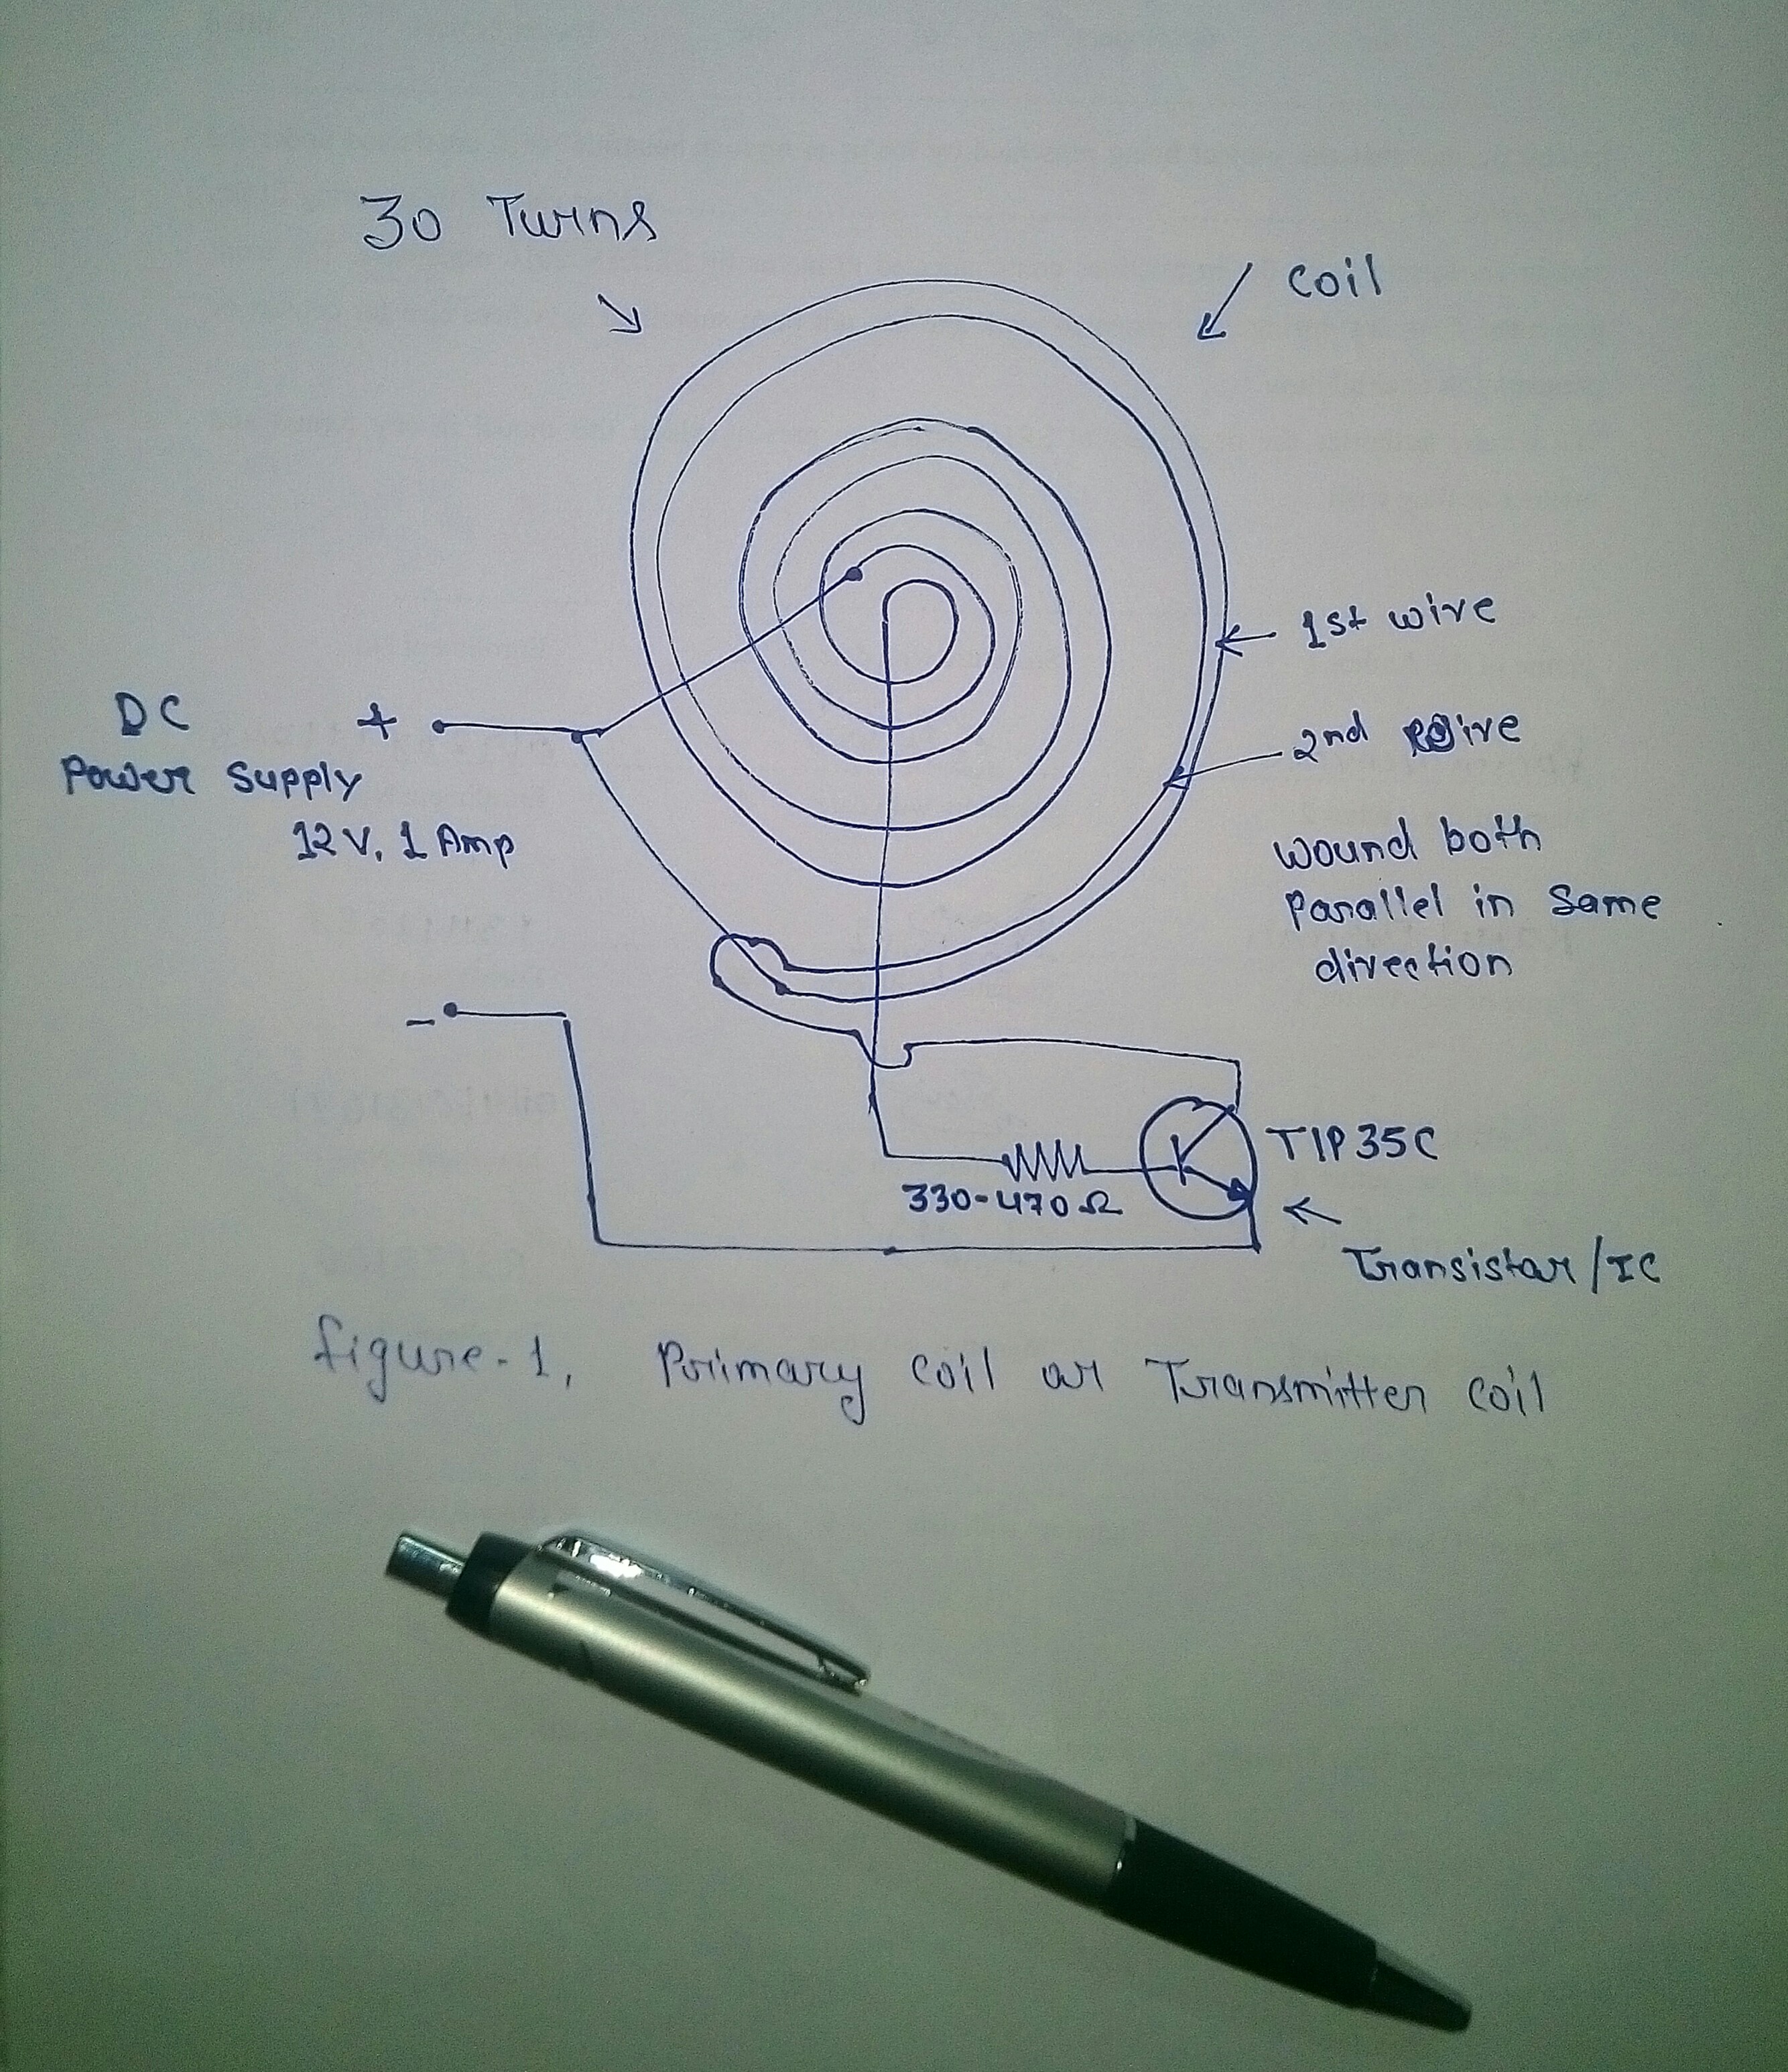 30 Turns
coil
1st wire
2nd wire
DC +
Power Supply
12V, 1 Amp
wound both
parallel in same
direction
-
TIP35C
330-470Ω
Transistor/IC
figure-1, Primary coil or Transmitter coil